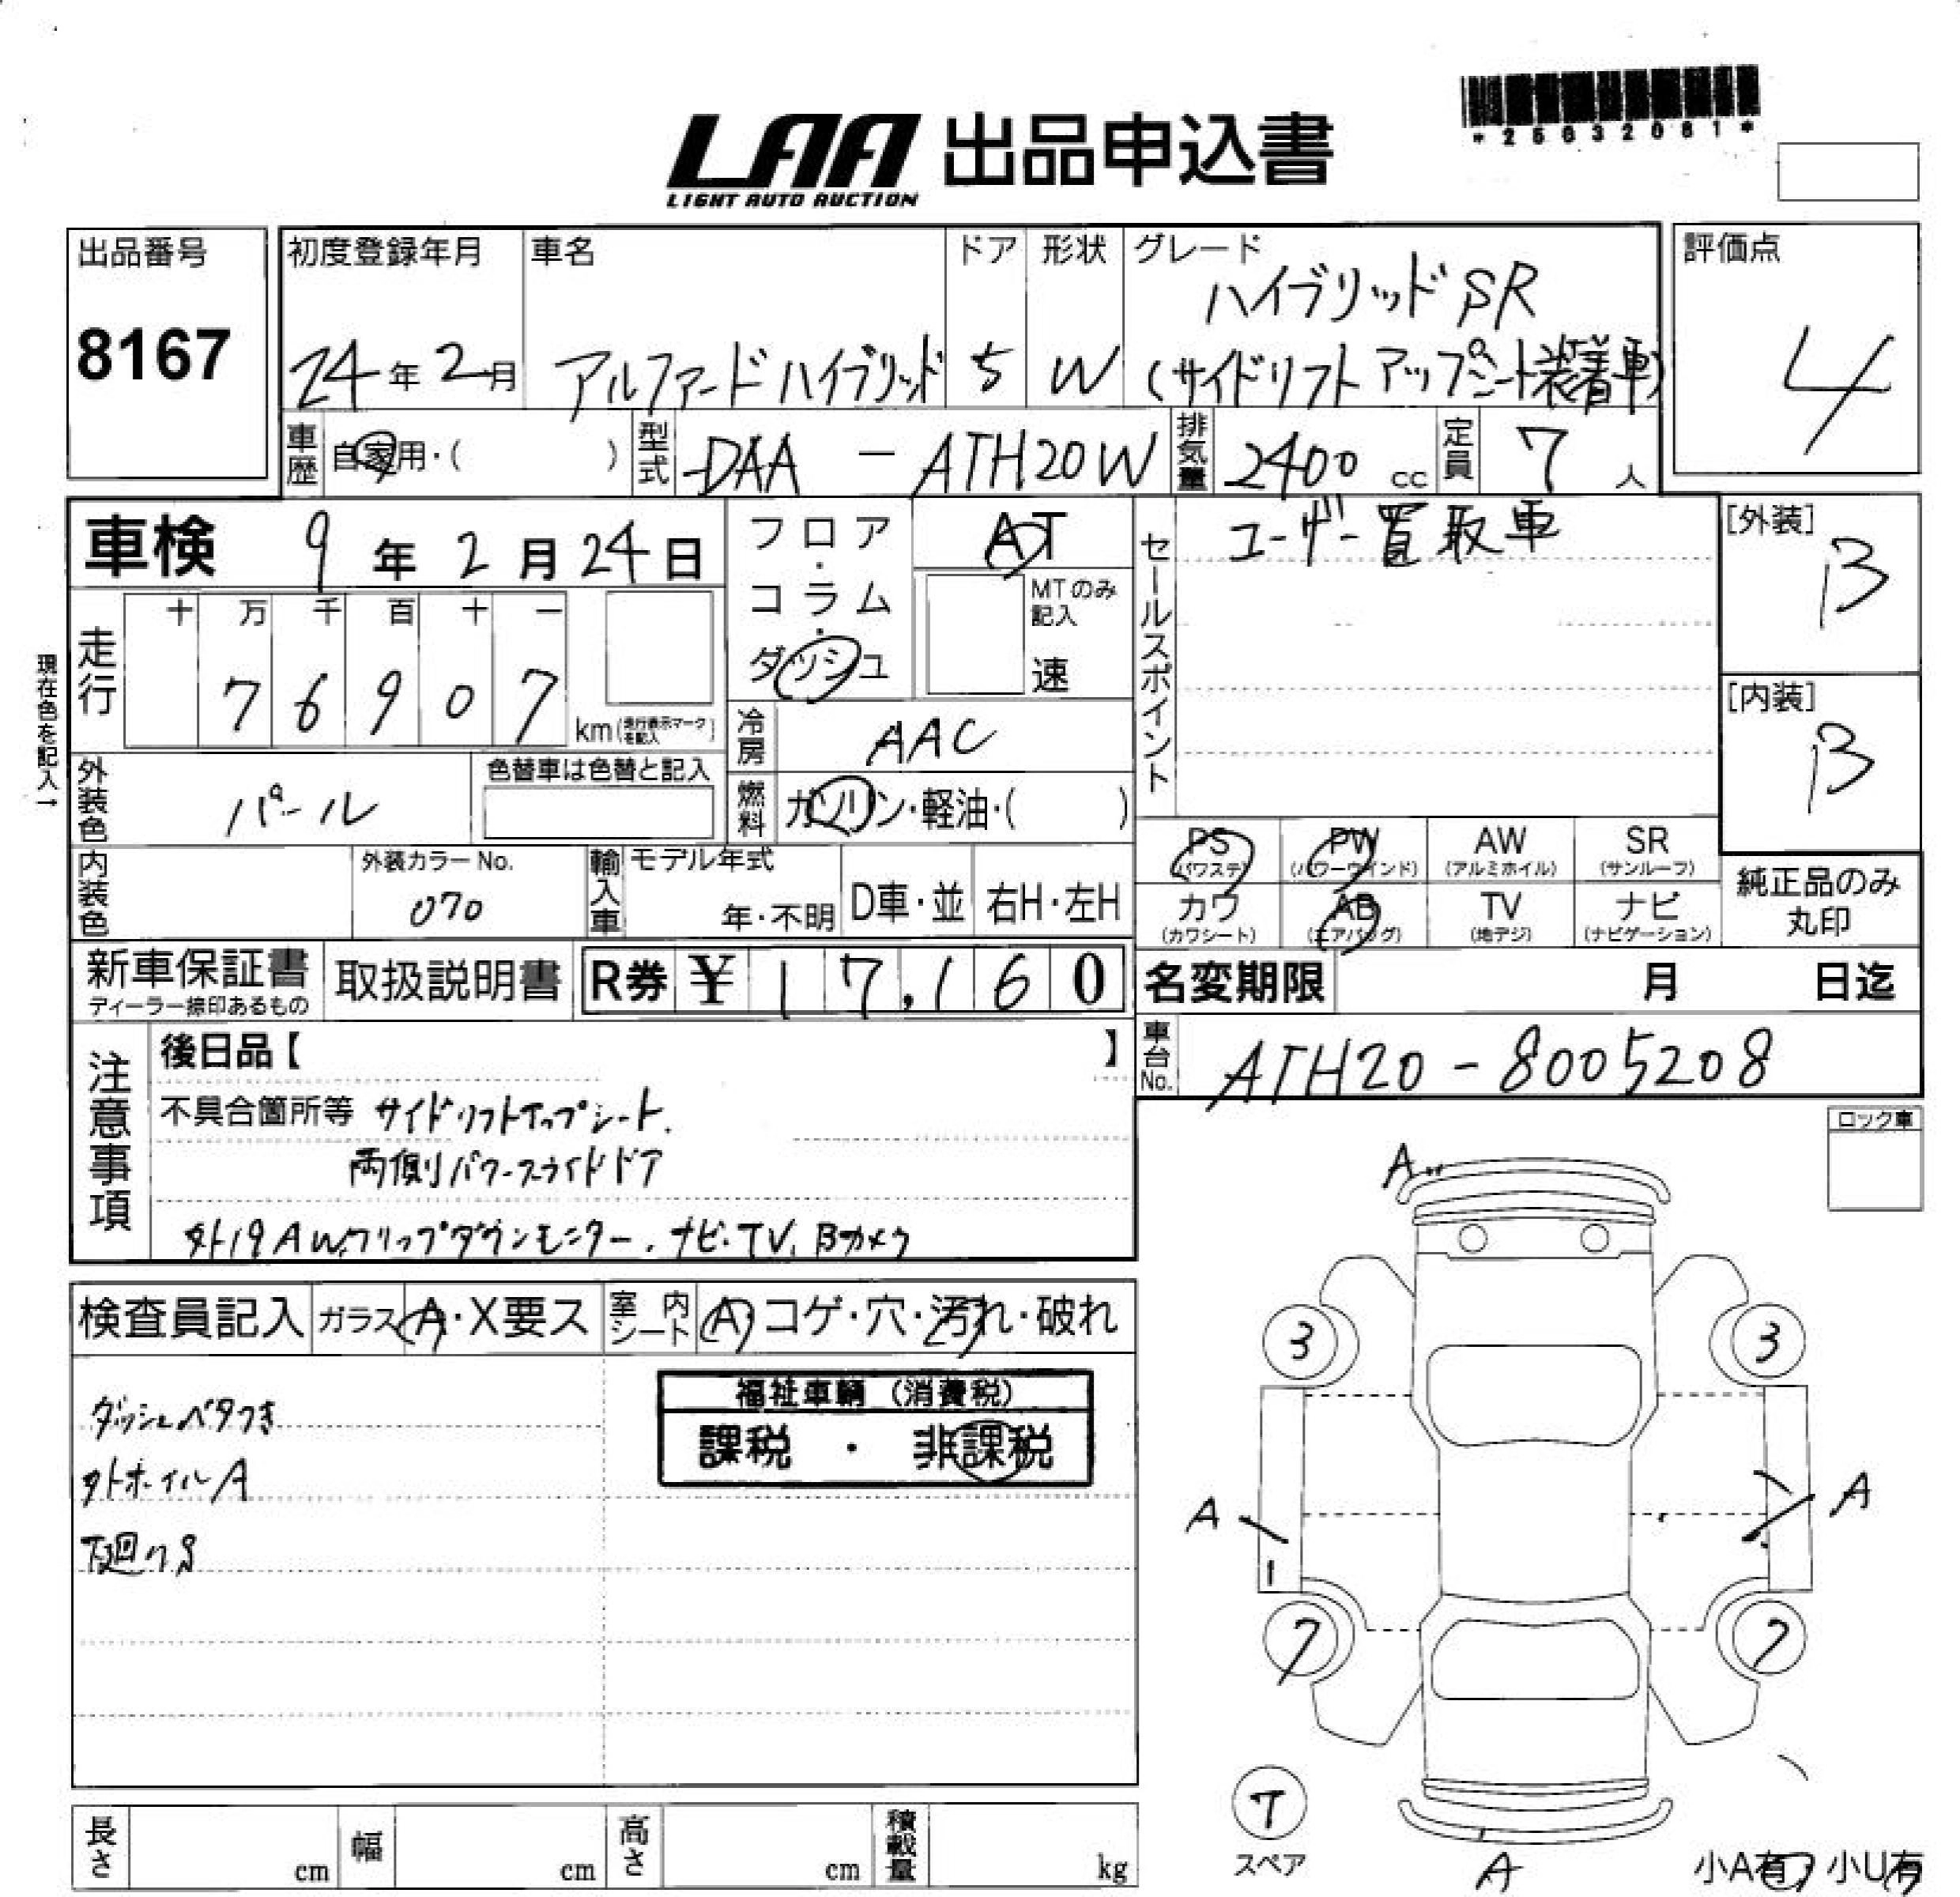 *25032081*
LAA 出品申込書
LIGHT AUTO AUCTION
出品番号 初度登録年月 車名 ドア 形状 グレード 評価点
8167 24年2月 アルファードハイブリッド 5 W ハイブリッドSR
(サイドリフトアップシート装着車) 4
車歴 自家用・( ) 型式 DAA - ATH20W 排気量 2400 cc 定員 7 人
車検 9年2月24日 フロア・コラム・ダッシュ AT セールスポイント ユーザー買取車 [外装] B
MTのみ記入 速
現在色を記入→
走行 十 万 千 百 十 一
7 6 9 0 7 km(走行表示マークを記入) [内装] B
冷房 AAC
外装色 パール 色替車は色替と記入 燃料 ガソリン・軽油・( )
PS (パワステ) PW (パワーウインド) AW (アルミホイル) SR (サンルーフ)
カワ (カワシート) AB (エアバッグ) TV (地デジ) ナビ (ナビゲーション) 純正品のみ丸印
内装色 外装カラーNo. 070 輸入車 モデル年式 年・不明 D車・並 右H・左H
新車保証書 ディーラー捺印あるもの 取扱説明書 R券 ¥17,160 名変期限 月 日迄
車台No. ATH20-8005208
注意事項 後日品【 】
不具合箇所等 サイドリフトアップシート.
両側パワースライドドア
外19AW.フリップダウンモニター.ナビ.TV.Bカメラ
ロック車
検査員記入 ガラス A・X要ス 室内シート A・コゲ・穴・汚れ・破れ
福祉車輌 (消費税)
課税 ・ 非課税
ダッシュベタつき
外ホイルA
下廻サビ
A
3 3
A A
7 7
T
スペア
A
小A有 小U有
長さ cm 幅 cm 高さ cm 積載量 kg